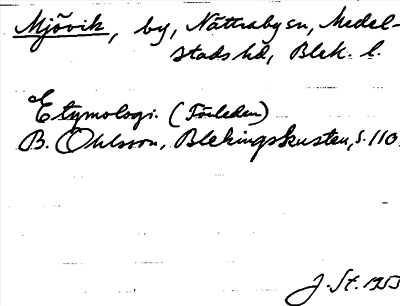 Mjövik, by, Nättraby sn, Medel-
stads hd, Blek. l.
Etymologi. (Förleden)
B. Ohlsson, Blekingskusten, s. 110.
J. St. 1953